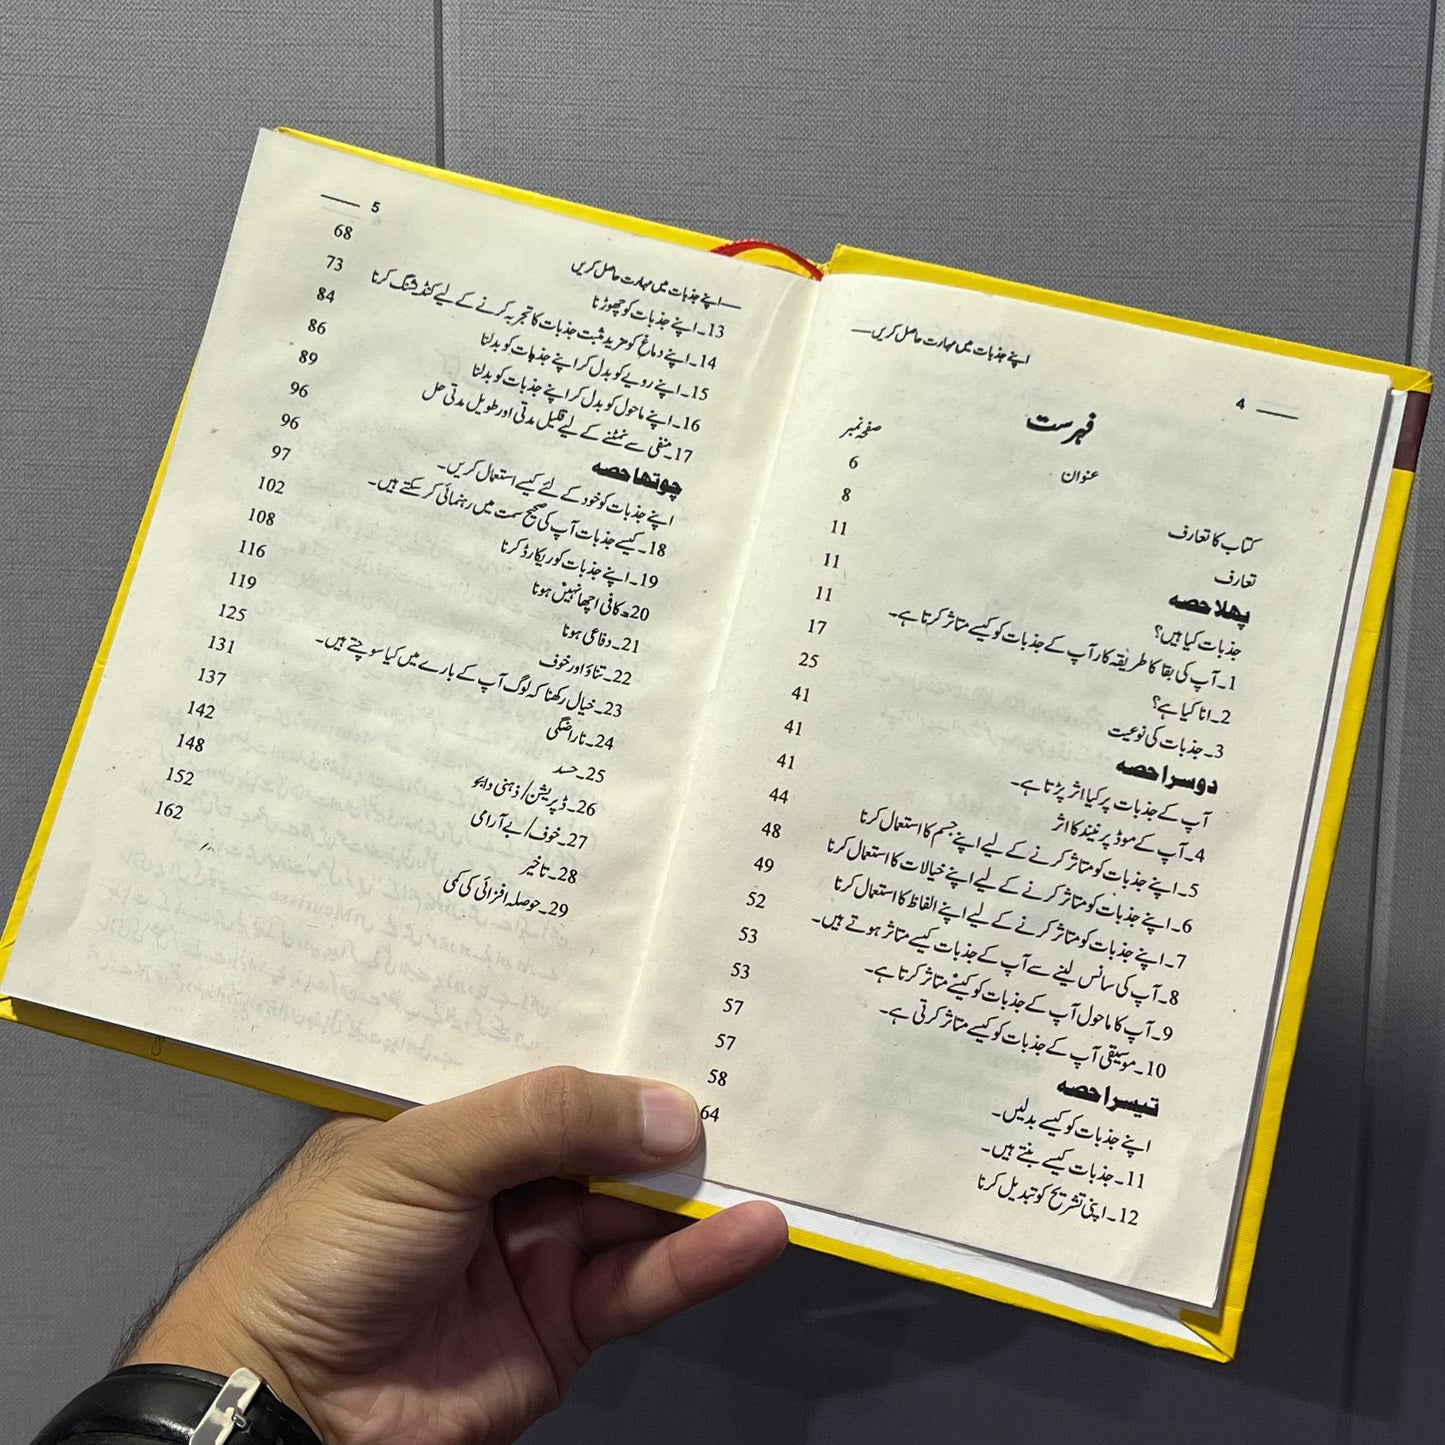 اپنے جذبات میں مہارت حاصل کریں 4
فہرست
عنوان صفحہ نمبر
کتاب کا تعارف 6
تعارف 8
پہلا حصہ 11
جذبات کیا ہیں؟ 11
1۔ آپ کی بقا کا طریقہ کار آپ کے جذبات کو کیسے متاثر کرتا ہے۔ 11
2۔ انا کیا ہے؟ 17
3۔ جذبات کی نوعیت 25
دوسرا حصہ 41
آپ کے جذبات پر کیا اثر پڑتا ہے۔ 41
4۔ آپ کے موڈ پر نیند کا اثر 41
5۔ اپنے جذبات کو متاثر کرنے کے لیے اپنے جسم کا استعمال کرنا 44
6۔ اپنے جذبات کو متاثر کرنے کے لیے اپنے خیالات کا استعمال کرنا 48
7۔ اپنے جذبات کو متاثر کرنے کے لیے اپنے الفاظ کا استعمال کرنا 49
8۔ آپ کی سانس لینے سے آپ کے جذبات کیسے متاثر ہوتے ہیں۔ 52
9۔ آپ کا ماحول آپ کے جذبات کو کیسے متاثر کرتا ہے۔ 53
10۔ موسیقی آپ کے جذبات کو کیسے متاثر کرتی ہے۔ 53
تیسرا حصہ 57
اپنے جذبات کو کیسے بدلیں۔ 57
11۔ جذبات کیسے بنتے ہیں۔ 58
12۔ اپنی تشریح کو تبدیل کرنا 64
اپنے جذبات میں مہارت حاصل کریں 5
13۔ اپنے جذبات کو چھوڑنا 68
14۔ اپنے دماغ کو مزید مثبت جذبات کا تجربہ کرنے کے لیے کنڈیشنگ کرنا 73
15۔ اپنے رویے کو بدل کر اپنے جذبات کو بدلنا 84
16۔ اپنے ماحول کو بدل کر اپنے جذبات کو بدلنا 86
17۔ منفی سے نمٹنے کے لیے قلیل مدتی اور طویل مدتی حل 89
چوتھا حصہ 96
اپنے جذبات کو خود کے لئے کیسے استعمال کریں۔ 96
18۔ کیسے جذبات آپ کی صحیح سمت میں رہنمائی کر سکتے ہیں۔ 97
19۔ اپنے جذبات کو ریکارڈ کرنا 102
20۔ کافی اچھا نہیں ہونا 108
21۔ دفاعی ہونا 116
22۔ تناؤ اور خوف 119
23۔ خیال رکھنا کہ لوگ آپ کے بارے میں کیا سوچتے ہیں۔ 125
24۔ ناراضگی 131
25۔ حسد 137
26۔ ڈپریشن/ ذہنی دباؤ 142
27۔ خوف/ بے آرامی 148
28۔ تاخیر 152
29۔ حوصلہ افزائی کی کمی 162